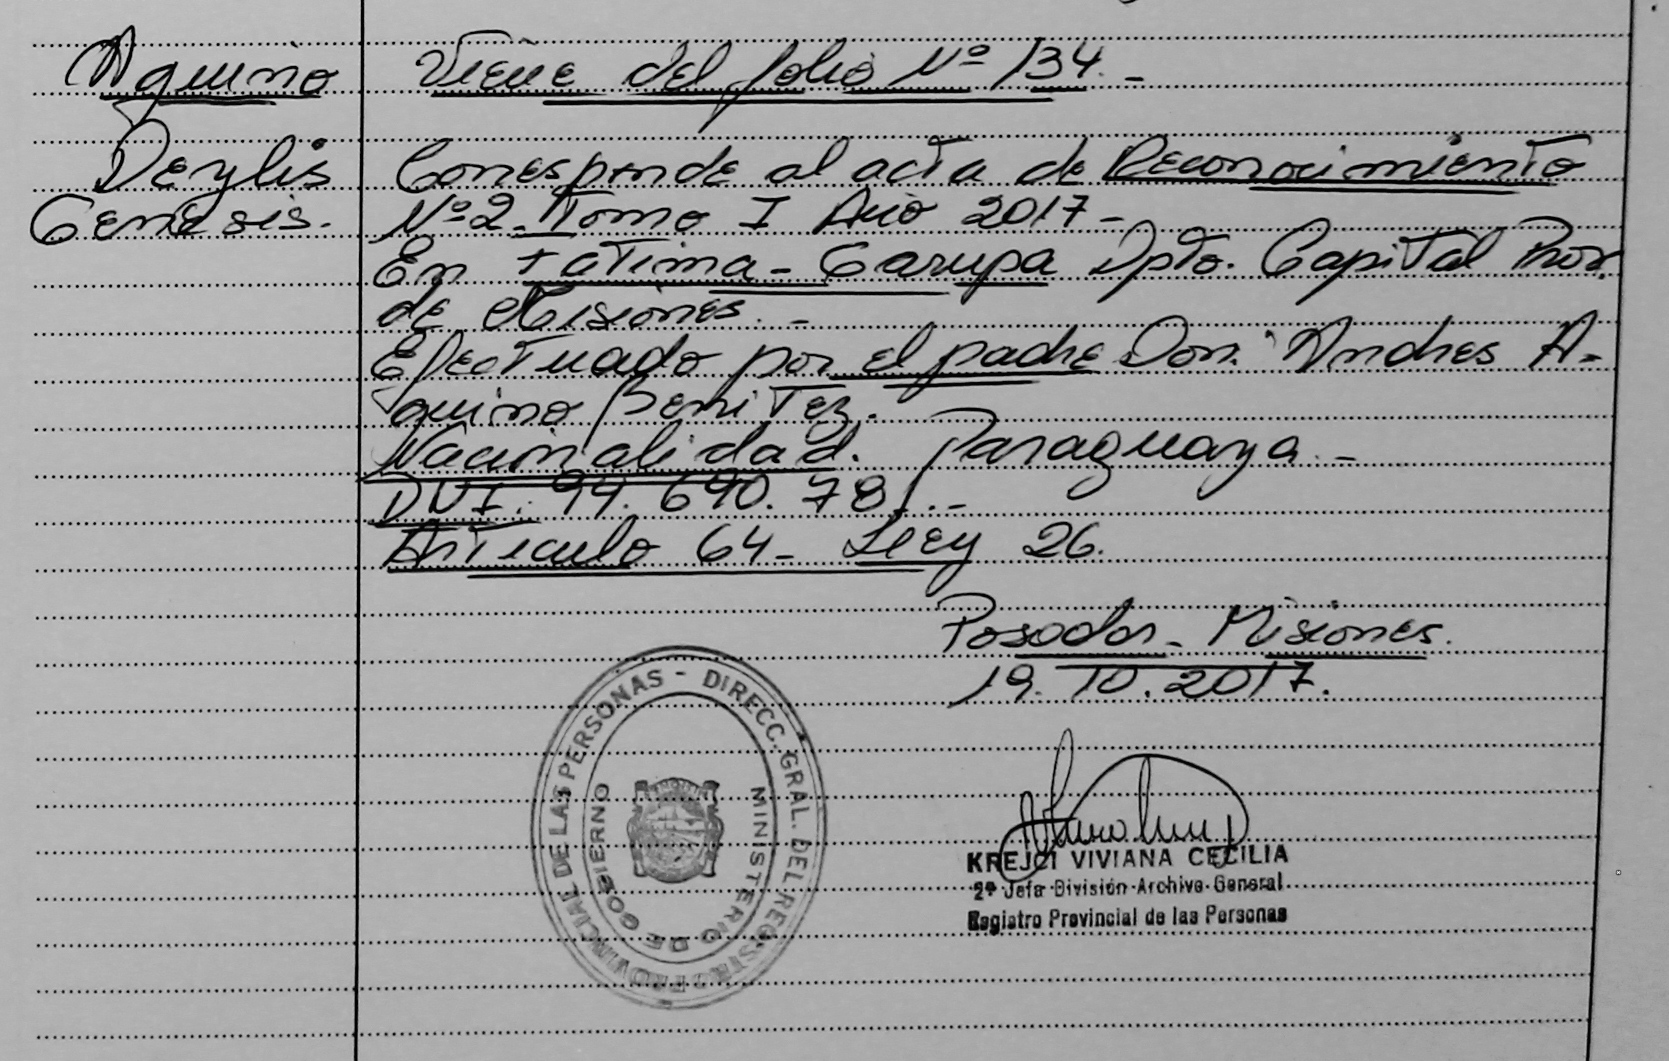 Aquino
Deylis
Genesis.
Viene del folio Nº 134.-
Corresponde al acta de Reconocimiento
Nº 2 Tomo I Año 2017-
En Fatima - Garupa Dpto. Capital Prov.
de Misiones.-
Efectuado por el padre Don. Andres A-
quino Benitez.
Nacionalidad. Paraguaya.-
DNI. 94.690.781.-
Articulo 64- Ley 26.
Posadas - Misiones.
19.10.2017.
DIRECC. GRAL. DEL REGISTRO PROVINCIAL DE LAS PERSONAS -
MINISTERIO DE GOBIERNO
KREJCI VIVIANA CECILIA
2ª Jefa División Archivo General
Registro Provincial de las Personas